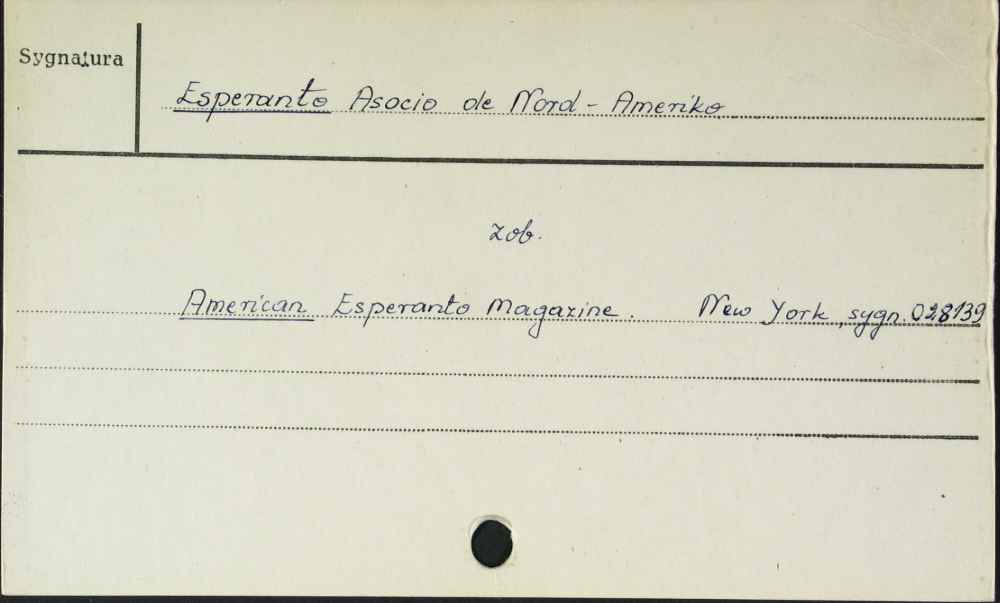 Sygnatura
Esperanto Asocio de Nord - Ameriko
zob.
American Esperanto Magazine. New York, sygn. 028139